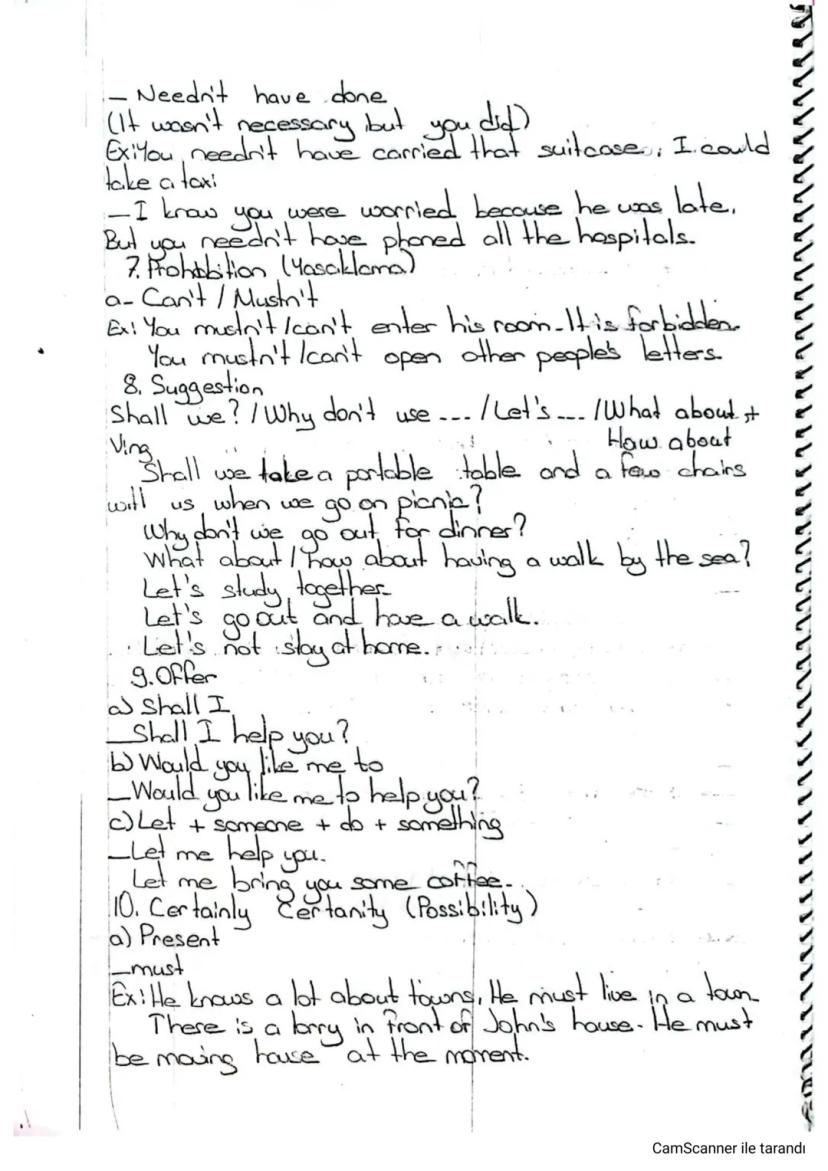 – Needn't have done
(It wasn't necessary but you did)
Ex: You needn't have carried that suitcase; I could
take a taxi
– I know you were worried because he was late.
But you needn't have phoned all the hospitals.
7. Prohobition (Yasaklama)
a- Can't / Mustn't
Ex: You mustn't / can't enter his room - It is forbidden.
You mustn't / can't open other people's letters.
8. Suggestion
Shall we? / Why don't use --- / Let's --- / What about +
How about
Ving
Shall we take a portable table and a few chairs
with us when we go on picnic?
Why don't we go out for dinner?
What about / how about having a walk by the sea?
Let's study together
Let's go out and have a walk.
Let's not stay at home.
9. Offer
a) Shall I
– Shall I help you?
b) Would you like me to
– Would you like me to help you?
c) Let + someone + do + something
– Let me help you.
Let me bring you some coffee.
10. Certainly Certanity (Possibility)
a) Present
– must
Ex: He knows a lot about towns, He must live in a town
There is a lorry in front of John's house. He must
be moving house at the moment.
CamScanner ile tarandı